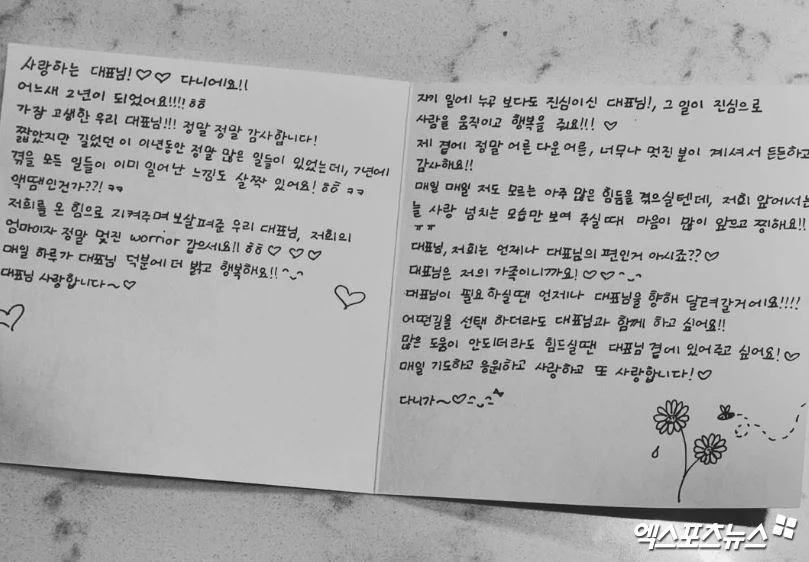 사랑하는 대표님!♡♡ 다니에요!!
어느새 2년이 되었어요!!!! ㅎㅎ
가장 고생한 우리 대표님!!! 정말 정말 감사합니다!
짧았지만 길었던 이 이년동안 정말 많은 일들이 있었는데, 7년에
겪을 모든 일들이 이미 일어난 느낌도 살짝 있어요! ㅎㅎ ㅋㅋ
액땜인건가??! ㅋㅋ
저희를 온 힘으로 지켜주며 보살펴준 우리 대표님, 저희의
엄마이자 정말 멋진 worrior 같으세요!! ㅎㅎ ♡ ♡ ♡
매일 하루가 대표님 덕분에 더 밝고 행복해요!! ^_^
대표님 사랑합니다~♡
자기 일에 누구 보다도 진심이신 대표님!, 그 일이 진심으로
사람을 움직이고 행복을 줘요!!! ♡
제 곁에 정말 어른 다운 어른, 너무나 멋진 분이 계셔서 든든하고
감사해요!!
매일 매일 저도 모르는 아주 많은 힘듦을 겪으실텐데, 저희 앞에서는
늘 사랑 넘치는 모습만 보여 주실 때 마음이 많이 아프고 찡해요!!
ㅠㅠ
대표님, 저희는 언제나 대표님의 편인거 아시죠?? ♡
대표님은 저의 가족이니까요! ♡♡ ^_^
대표님이 필요하실땐 언제나 대표님을 향해 달려갈거에요!!!!
어떤길을 선택 하더라도 대표님과 함께 하고 싶어요!!
많은 도움이 안되더라도 힘드실땐 대표님 곁에 있어주고 싶어요! ♡
매일 기도하고 응원하고 사랑하고 또 사랑합니다! ♡
다니가~♡ ^_^
엑스포츠뉴스